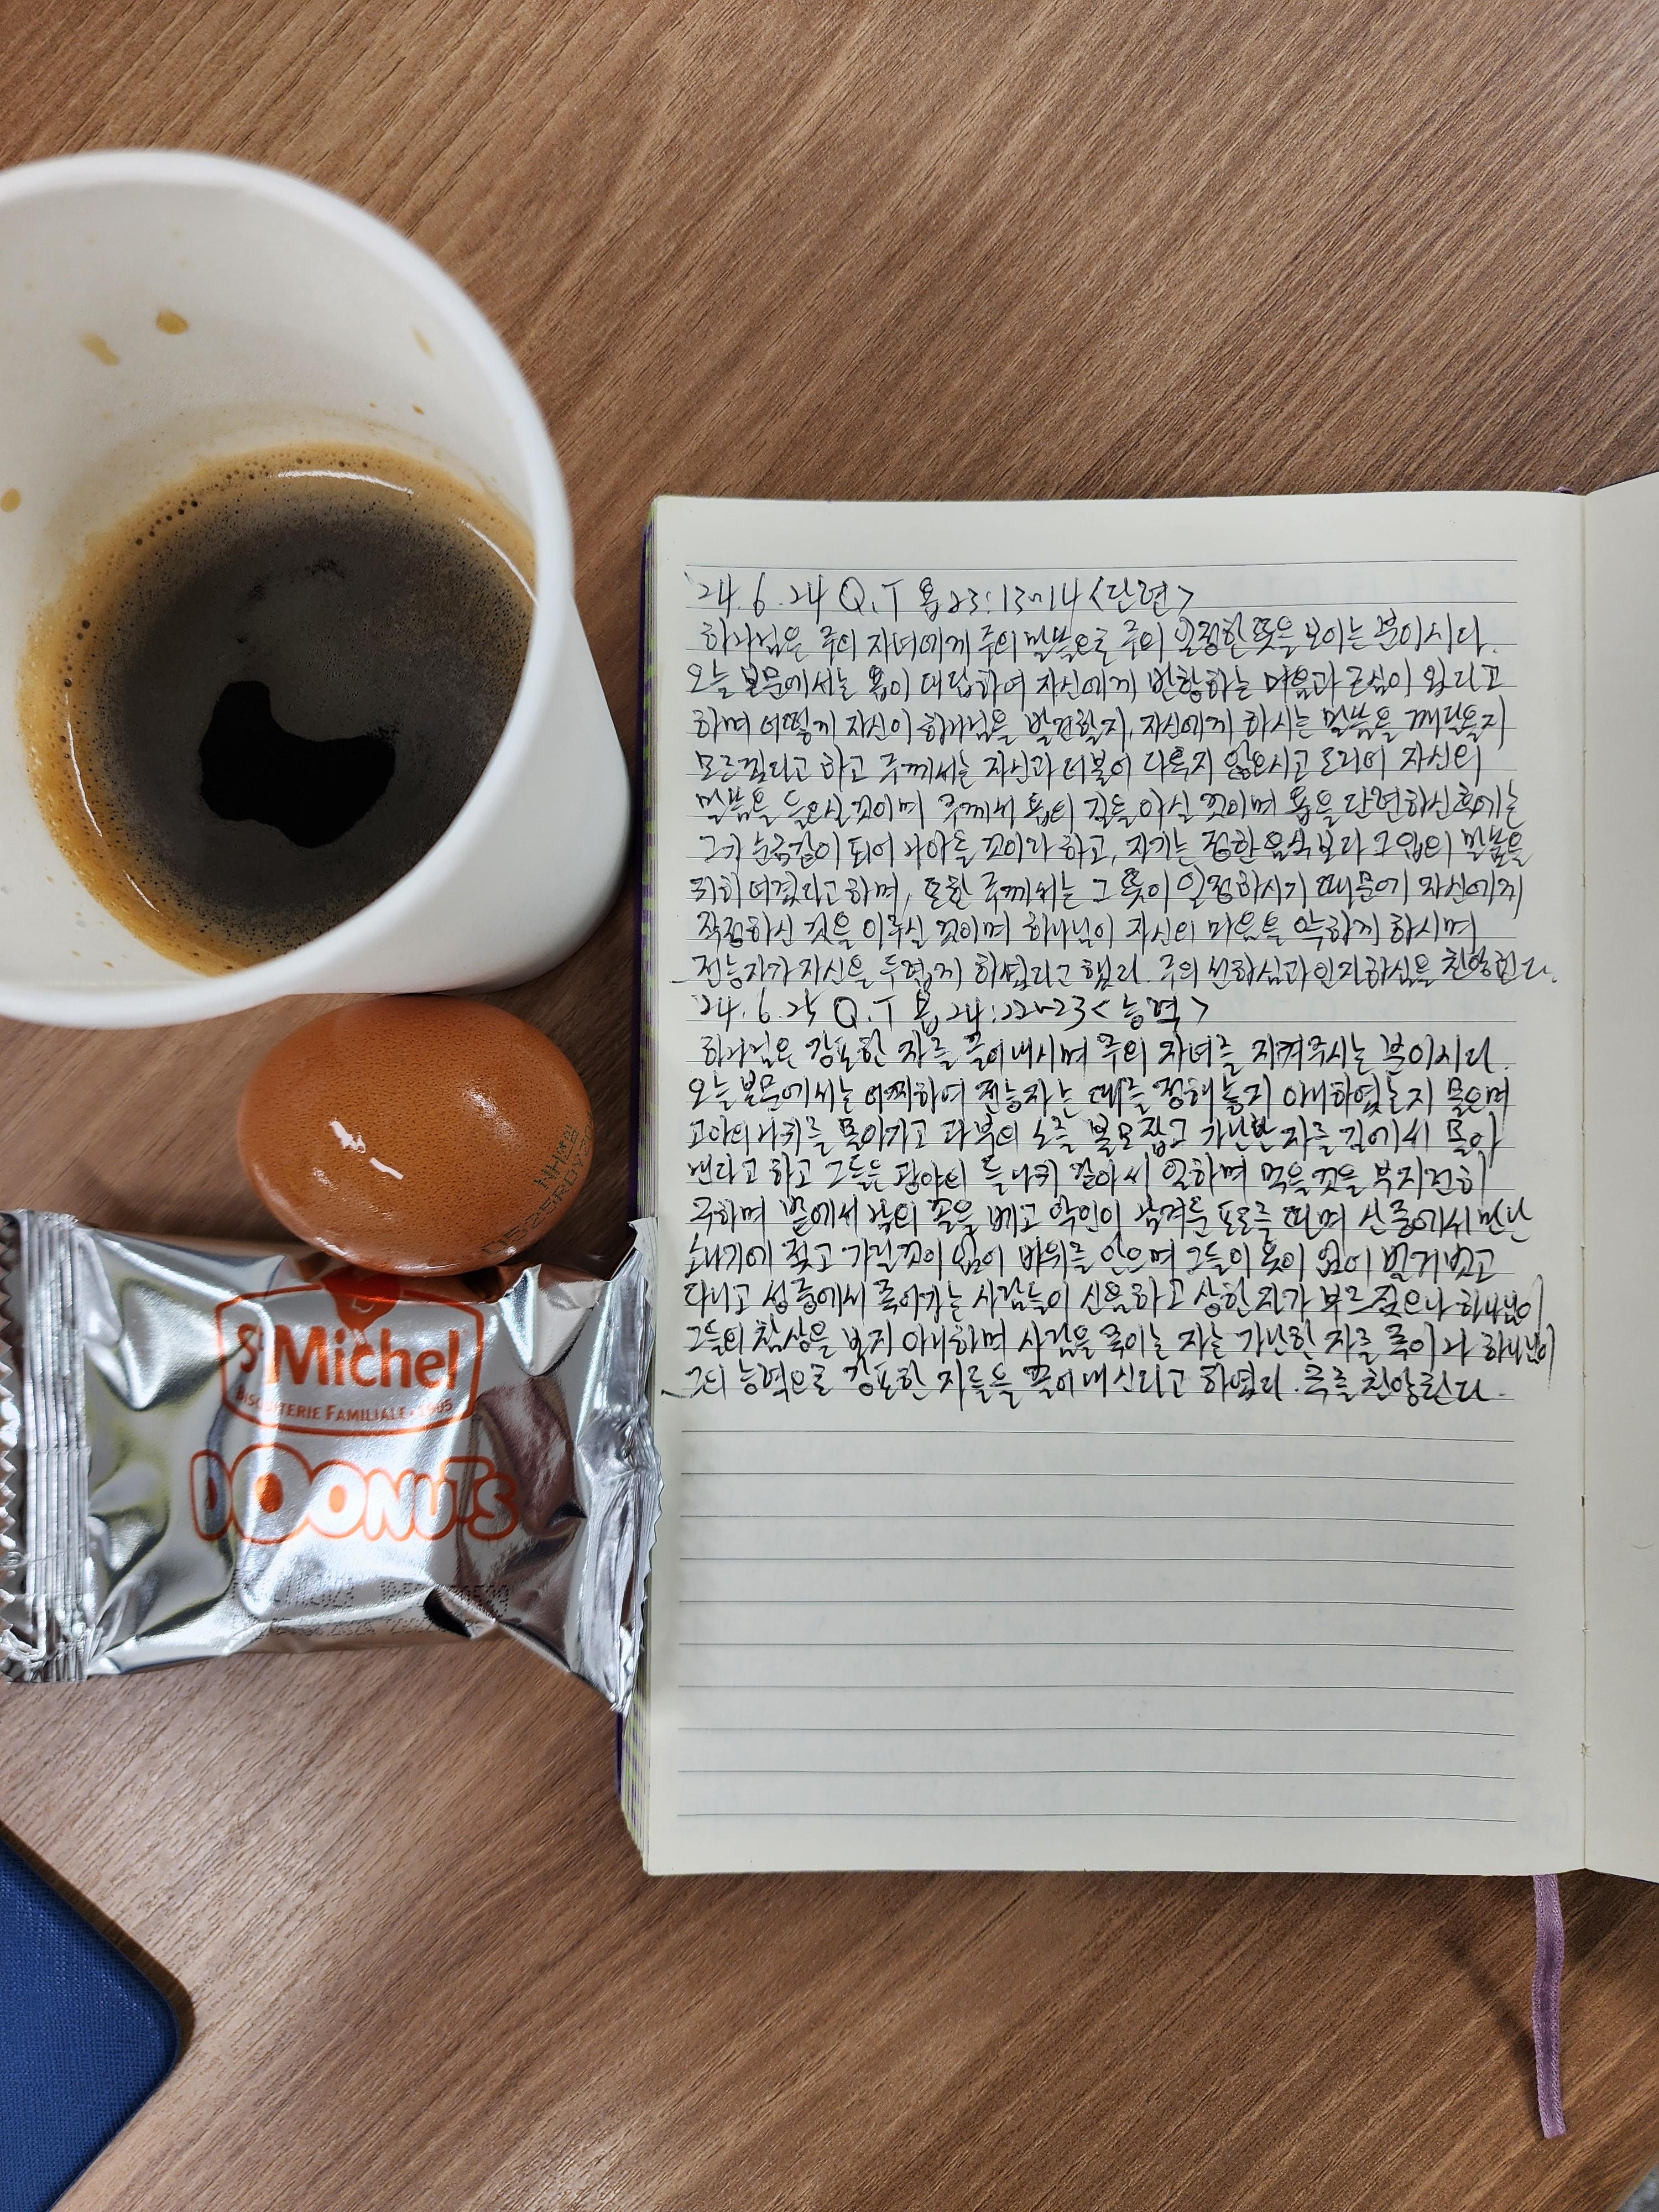 '24.6.24 Q.T 욥23:13~14 <단련>
하나님은 주의 자녀에게 주의 말씀으로 주의 일정한 뜻을 보이는 분이시다.
오늘 본문에서는 욥이 대답하여 자신에게 반항하는 마음과 근심이 있다고
하며 어떻게 자신이 하나님을 발견할지, 자신에게 하시는 말씀을 깨달을지
모르겠다고 하고 주께서는 자신과 더불어 다투지 않으시고 도리어 자신의
말씀을 들으실 것이며 주께서 욥의 길을 아실 것이며 욥을 단련하신 후에는
그가 순금같이 되어 나아올 것이라 하고, 자기는 정한 음식보다 그 입의 말씀을
귀히 여겼다고 하며, 또한 주께서는 그 뜻이 일정하시기 때문에 자신에게
작정하신 것을 이루실 것이며 하나님이 자신의 마음을 약하게 하시며
전능자가 자신을 두렵게 하셨다고 했다. 주의 선하심과 인자하심을 찬양한다.
'24.6.25 Q.T 욥24:22~23 <능력>
하나님은 강포한 자를 끌어내시며 주의 자녀를 지켜주시는 분이시다.
오늘 본문에서는 어찌하여 전능자는 때를 정해 놓지 아니하였는지 물으며
고아의 나귀를 몰아가고 과부의 소를 볼모 잡고 가난한 자를 길에서 몰아
낸다고 하고 그들은 광야의 들나귀 같아서 일하며 먹을 것을 부지런히
구하며 밭에서 남의 꼴을 베고 악인이 남겨둔 포도를 따며 산중에서 만난
소나기에 젖고 가릴 것이 없어 바위를 안으며 그들이 옷이 없어 벌거벗고
다니고 성 중에서 죽어가는 사람들이 신음하고 상한 자가 부르짖으나 하나님이
그들의 참상을 보지 아니하며 사람을 죽이는 자는 가난한 자를 죽이나 하나님이
그의 능력으로 강포한 자들을 끌어내신다고 하였다. 주를 찬양한다.
NH
0525PDYZ
St Michel
BISCUITERIE FAMILIALE · 1905
DOONUTS